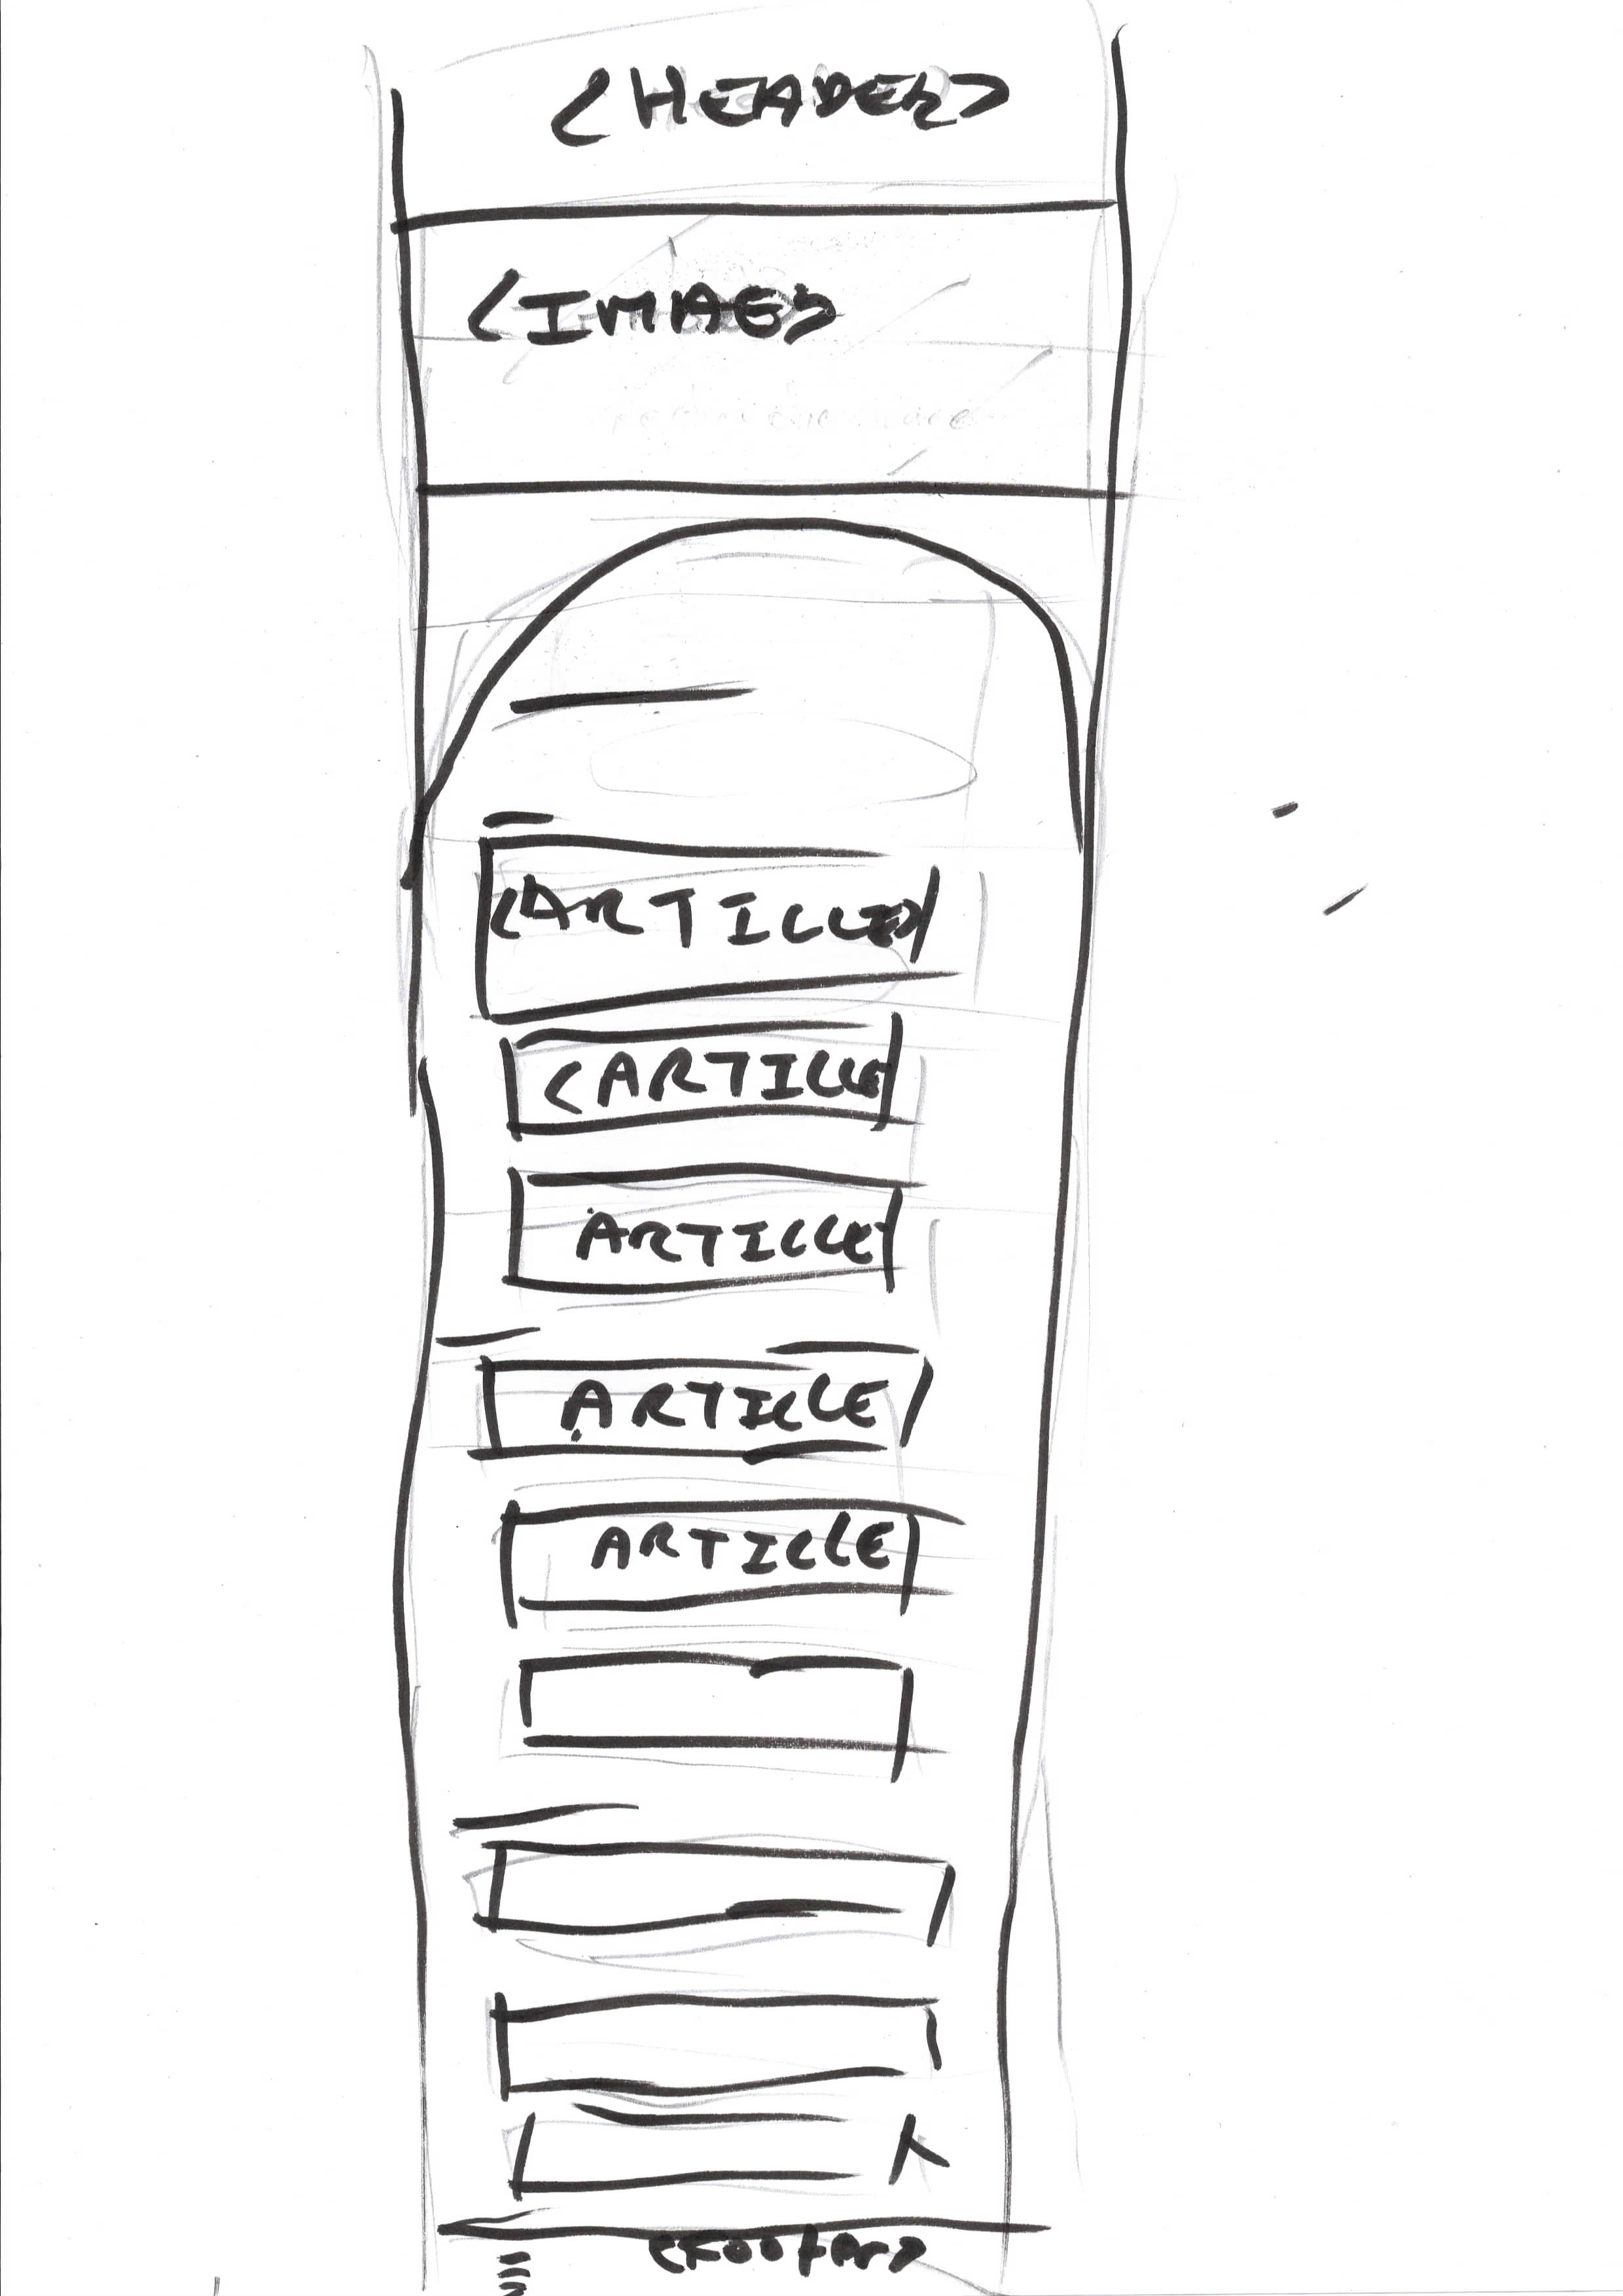 <HEADER>
<IMAGE>
<ARTICLE>
<ARTICLE
ARTICLE
ARTICLE
ARTICLE
<footer>